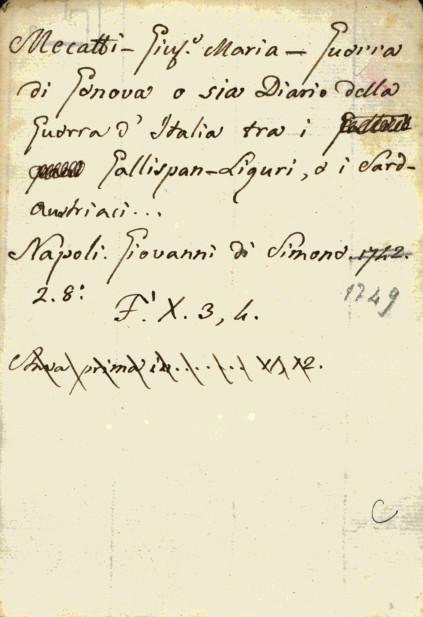 Mecatti - Giuse. Maria - Guerra
di Genova o sia Diario della
Guerra d' Italia tra i
Gallispan-Liguri, e i Sard-
austriaci...
Napoli. Giovanni di Simone. 1742.
2. 8.° 1749
F.' X. 3, 4.
prima in....... X, X2.
C